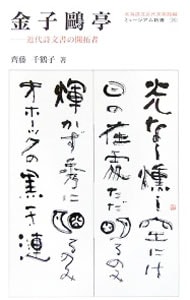 金子鷗亭
――近代詩文書の開拓者
齊藤 千鶴子 著
北海道立近代美術館編
ミュージアム新書
光なく燻し空には
日の在處ただ
るのみ
輝かず秀に
るのみ
オホーツクの黒き漣